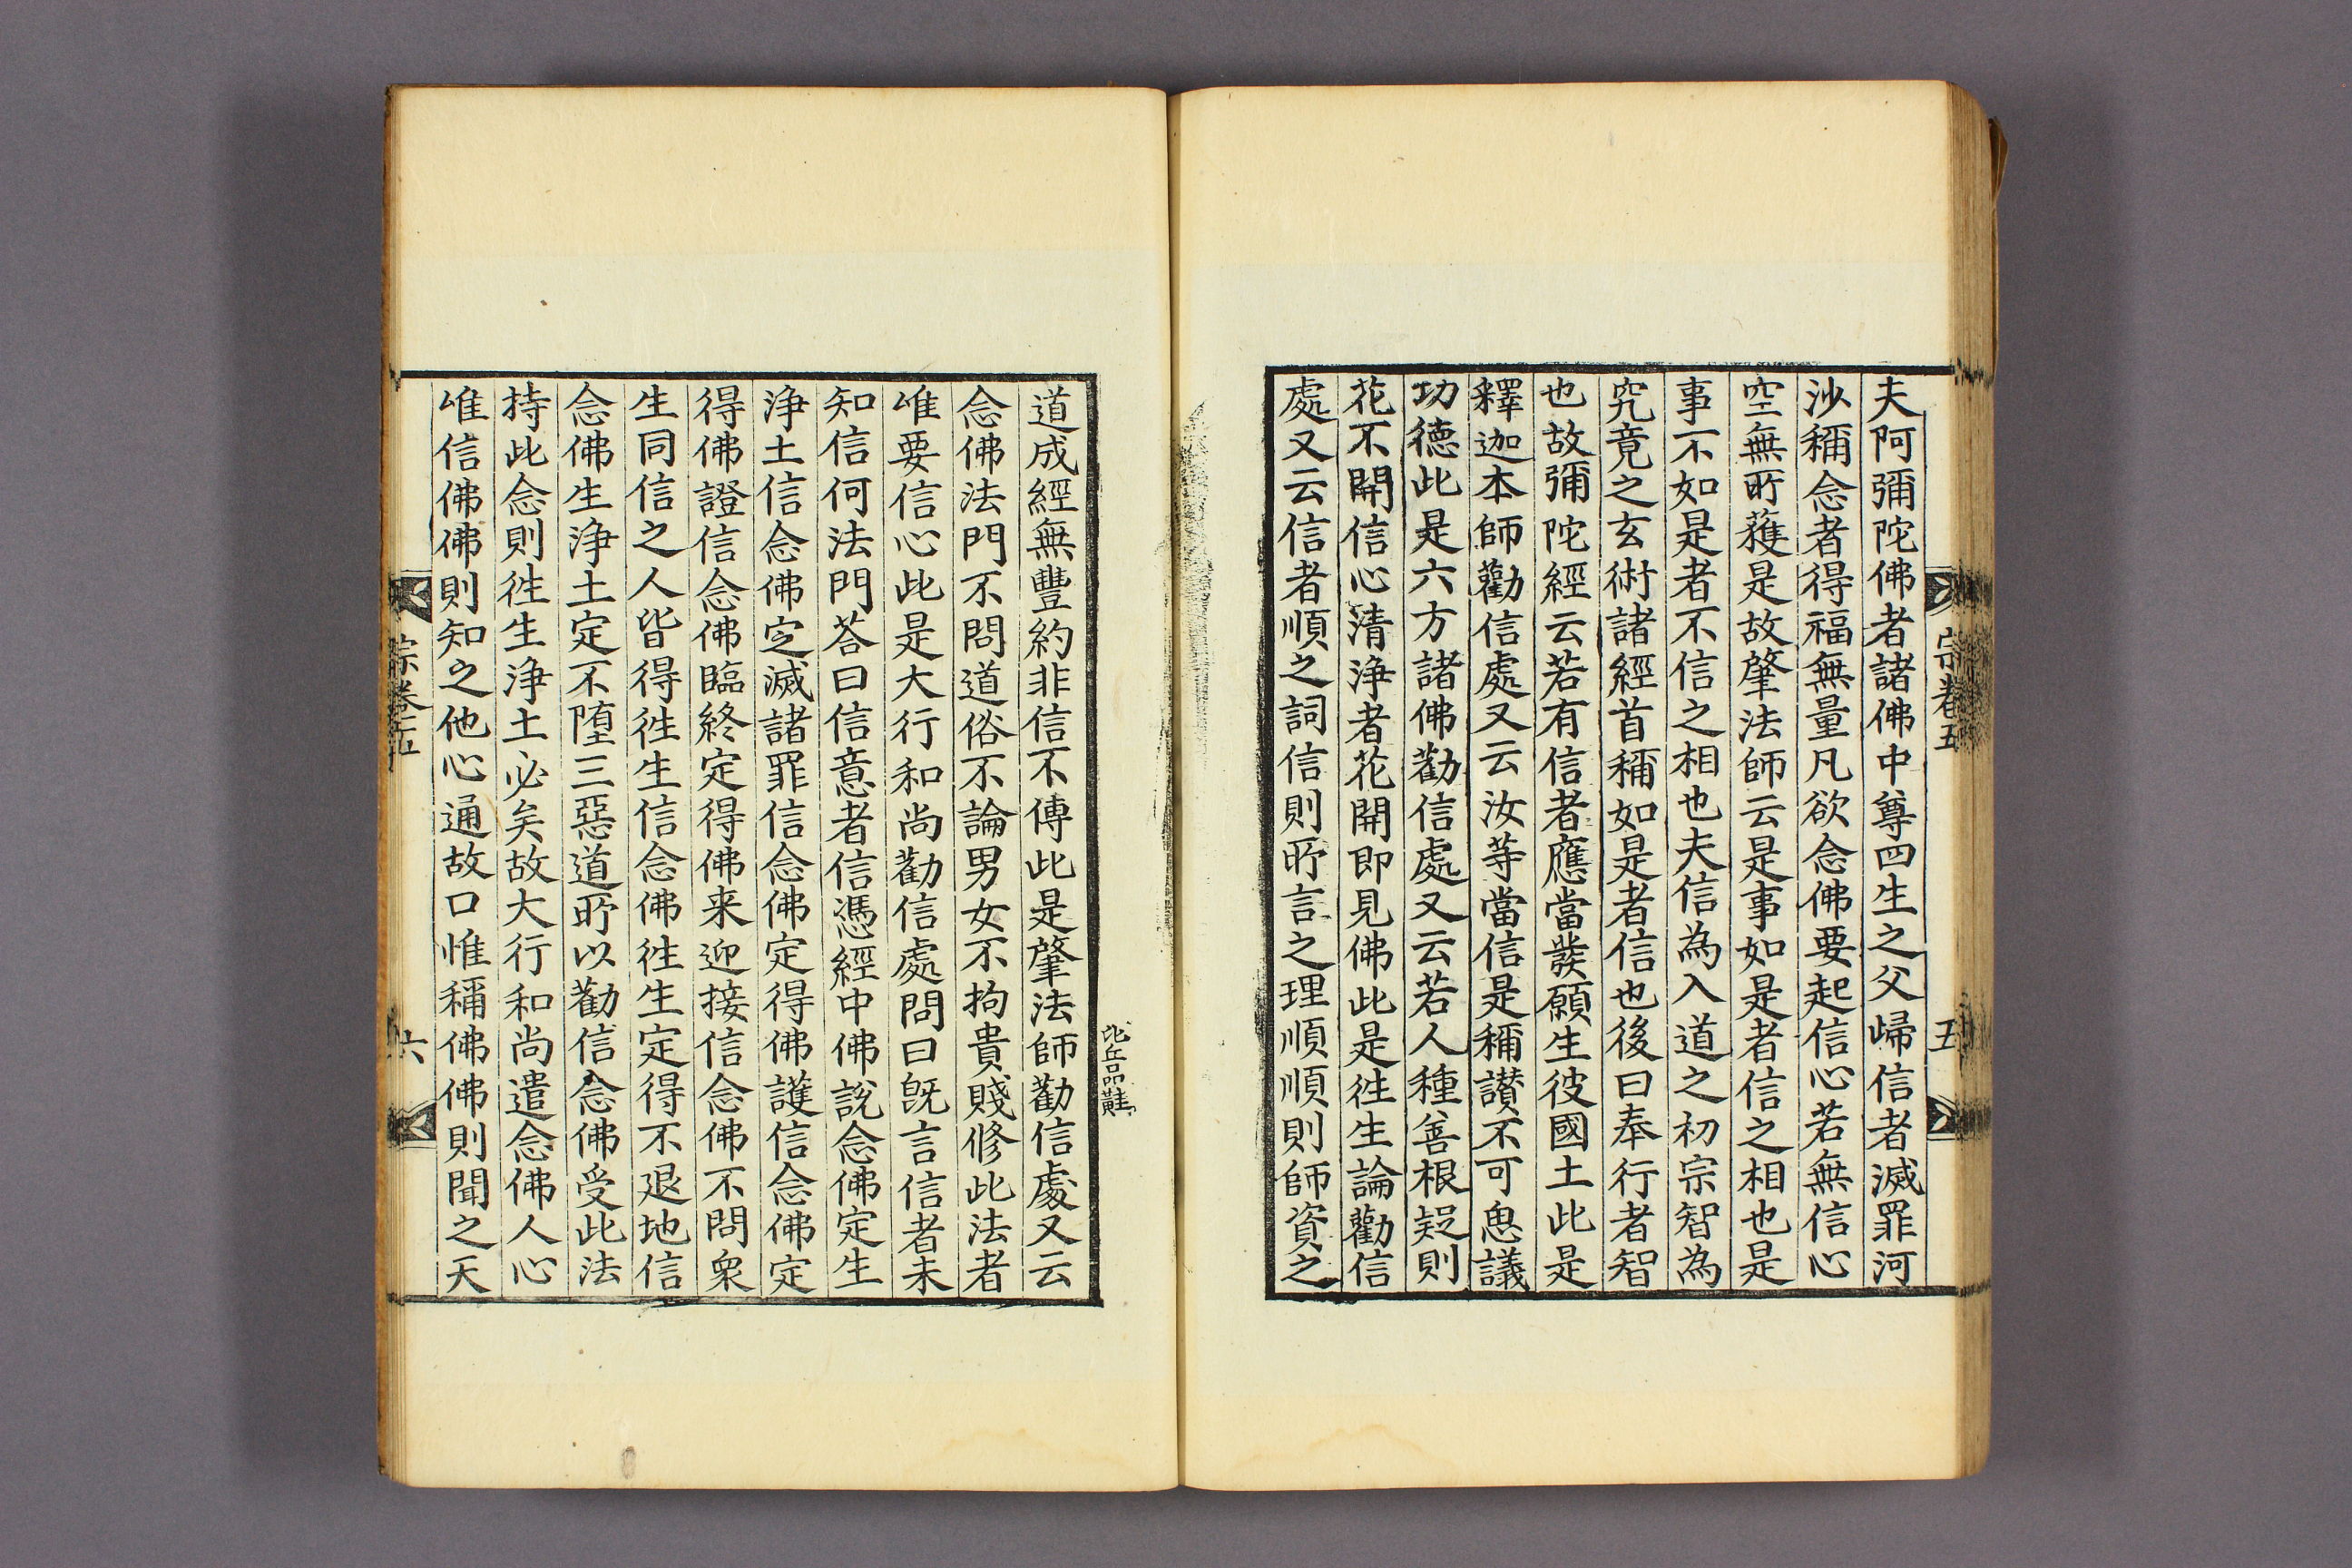 宗卷五
五
夫阿彌陀佛者諸佛中尊四生之父歸信者滅罪河
沙稱念者得福無量凡欲念佛要起信心若無信心
空無所獲是故肇法師云是事如是者信之相也是
事不如是者不信之相也夫信為入道之初宗智為
究竟之玄術諸經首稱如是者信也後曰奉行者智
也故彌陀經云若有信者應當發願生彼國土此是
釋迦本師勸信處又云汝等當信是稱讃不可思議
功德此是六方諸佛勸信處又云若人種善根疑則
花不開信心清淨者花開即見佛此是徃生論勸信
處又云信者順之詞信則所言之理順順則師資之
道成經無豐約非信不傳此是肇法師勸信處又云
念佛法門不問道俗不論男女不拘貴賤修此法者
唯要信心此是大行和尚勸信處問曰旣言信者未
知信何法門荅曰信意者信憑經中佛說念佛定生
淨土信念佛定滅諸罪信念佛定得佛護信念佛定
得佛證信念佛臨終定得佛来迎接信念佛不問衆
生同信之人皆得徃生信念佛徃生定得不退地信
念佛生淨土定不墮三惡道所以勸信念佛受此法
持此念則徃生淨土必矣故大行和尚遣念佛人心
唯信佛佛則知之他心通故口惟稱佛佛則聞之天
宗卷五
六